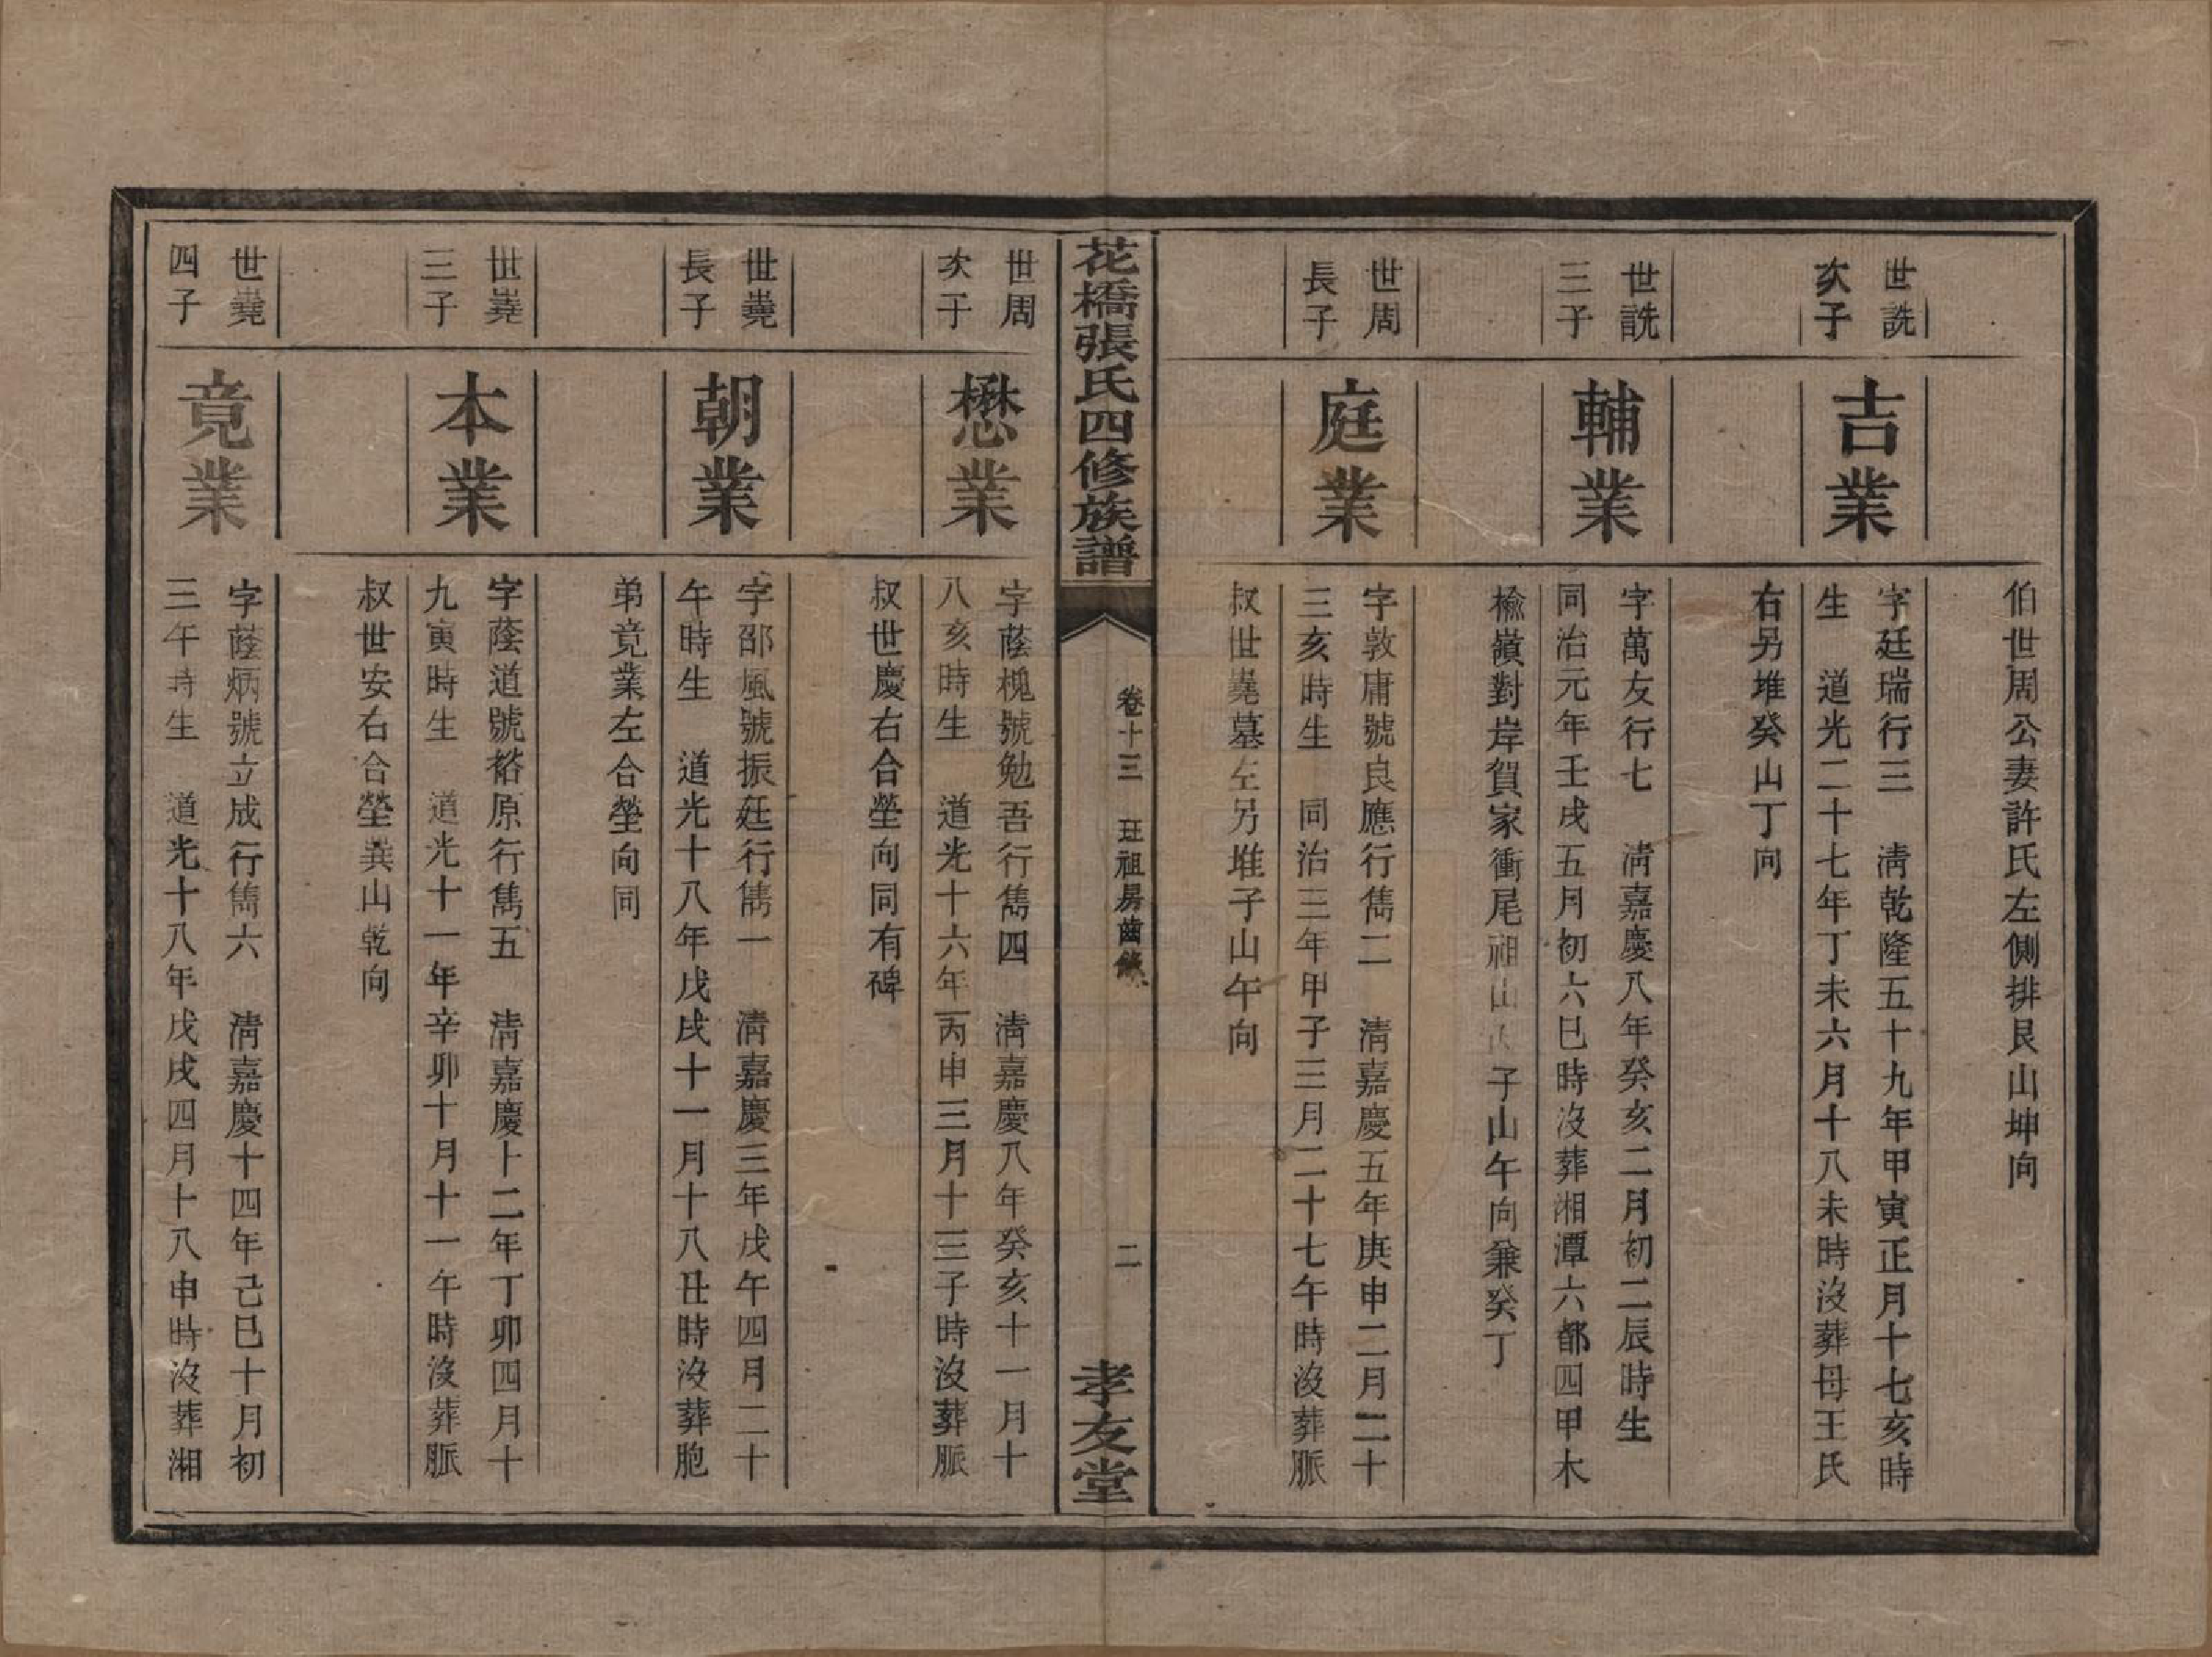 伯世周公妻許氏左側排艮山坤向
世詵
次子
吉業
字廷瑞行三　淸乾隆五十九年甲寅正月十七亥時
生　道光二十七年丁未六月十八未時沒葬母王氏
右另堆癸山丁向
世詵
三子
輔業
字萬友行七　淸嘉慶八年癸亥二月初二辰時生
同治元年壬戌五月初六巳時沒葬湘潭六都四甲木
檢嶺對岸賀家衝尾祖山內子山午向兼癸丁
世周
長子
庭業
字敦庸號良應行儁二　淸嘉慶五年庚申二月二十
三亥時生　同治三年甲子三月二十七午時沒葬脈
叔世嶤墓左另堆子山午向
花橋張氏四修族譜
卷十三　班祖房齒錄
二
孝友堂
世周
次子
懋業
字蔭槐號勉吾行儁四　淸嘉慶八年癸亥十一月十
八亥時生　道光十六年丙申三月十三子時沒葬脈
叔世慶右合塋向同有碑
世嶤
長子
朝業
字邵風號振廷行儁一　淸嘉慶三年戊午四月二十
午時生　道光十八年戊戌十一月十八丑時沒葬胞
弟竟業左合塋向同
世嶤
三子
本業
字蔭道號裕原行儁五　淸嘉慶十二年丁卯四月十
九寅時生　道光十一年辛卯十月十一午時沒葬脈
叔世安右合塋巽山乾向
世嶤
四子
竟業
字蔭炳號立成行儁六　淸嘉慶十四年己巳十月初
三午時生　道光十八年戊戌四月十八申時沒葬湘